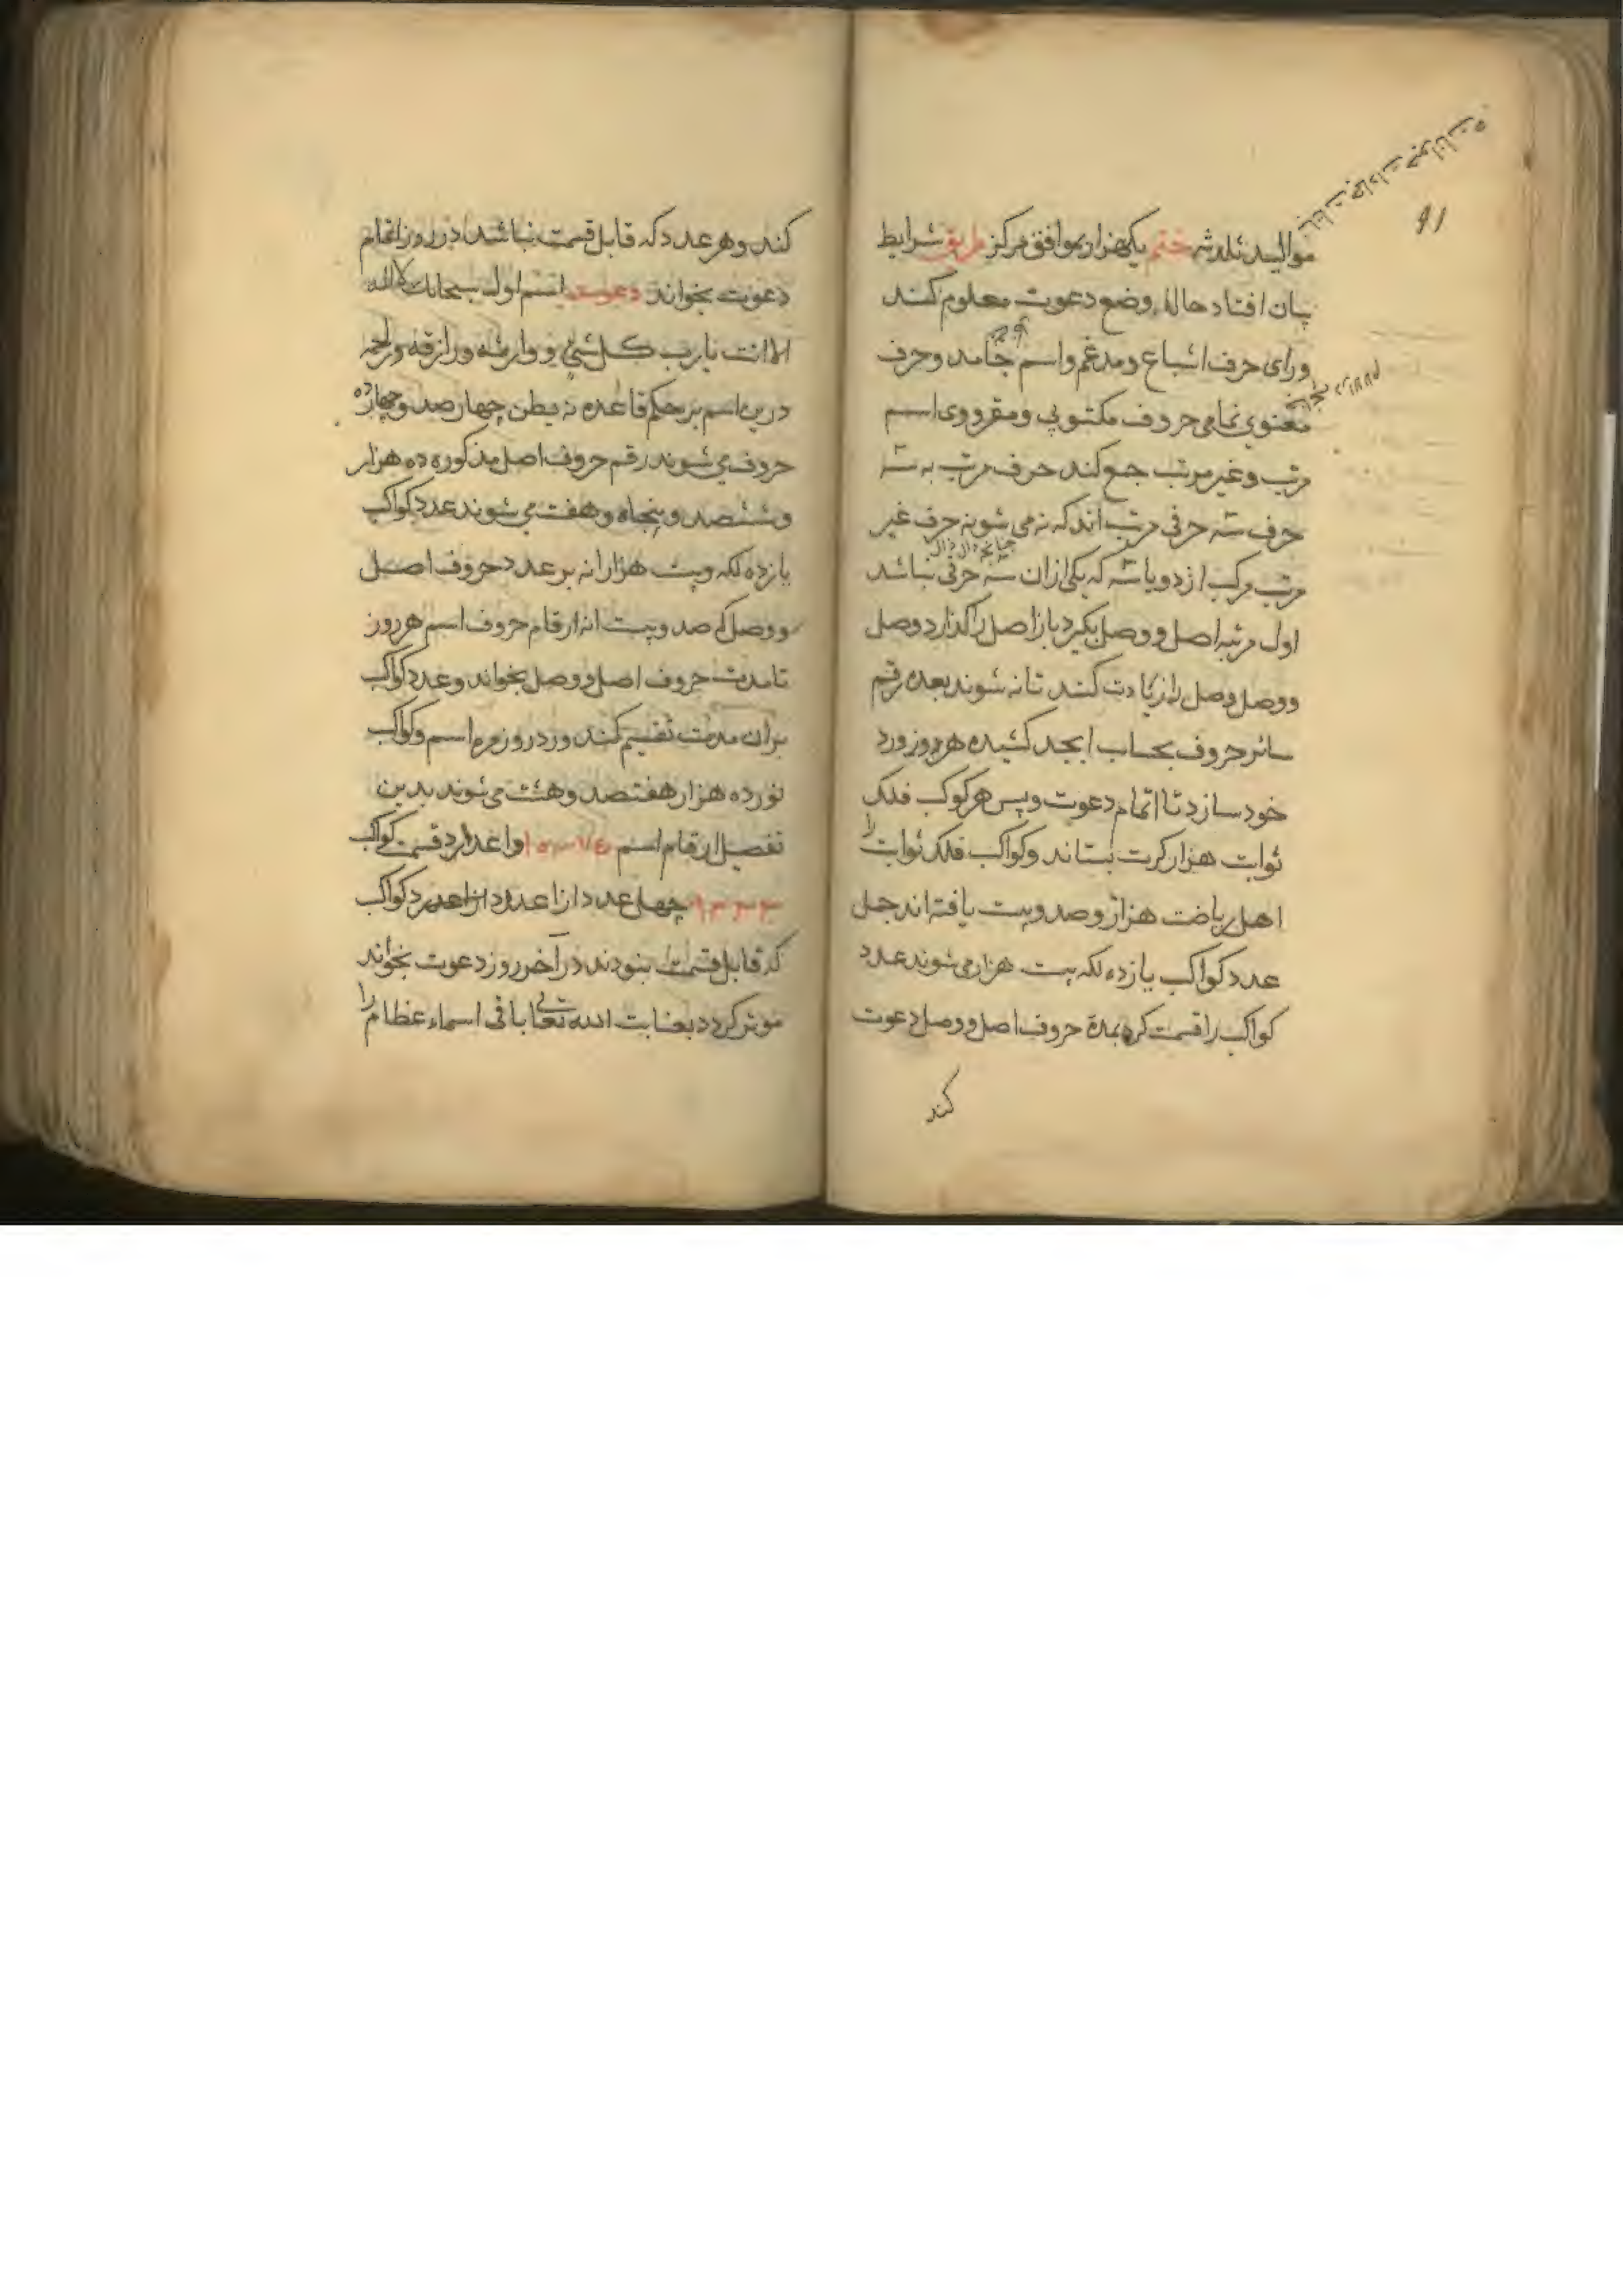 موالید ثلاثه ختم یکهزار موافق مرکز طریق شرایط
بیان افتاد حالا وضع دعوت معلوم کند
ورای حرف اشباع و مدغم و اسم جامد و حرف
معنوی تمامی حروف مکتوبی و مقرووی اسم
مرتب و غیر مرتب جمع کند حرف مرتب به سه
حرف سه حرفی مرتب اند که نه می شود نه حرف غیر
مرتب مرکب از دو یا سه که یکی ازان سه حرفی نباشد
اول مرتبه اصل و وصل بگیرد باز اصل را گذارد وصل
و وصل وصل را زیادت کند تا نه شوند بعده رقم
سائر حروف بحساب ابجد کشیده هر روز ورد
خود سازد تا اتمام دعوت و پس هر کوکب فلک
ثوابت هزار کرت بستاند و کواکب فلک ثوابت را
اهل ریاضت هزار و صد و بیست یافته اند جمل
عدد کواکب یازده لکه بیست هزار می شوند عدد
کواکب را قسمت کرده بمدة حروف اصل و وصل دعوت
کند
کند و هر عدد که قابل قسمت نباشد در روز اتمام
دعوت بخواند دعوت اسم اول سبحانک لا اله
الا انت یا رب کل شئ و وارثه و رازقه و راحمه
درین اسم بر حکم قاعده نه بطن چهار صد و چهارده
حروف می شوند رقم حروف اصل مذکوره ده هزار
و ششصد و پنجاه و هفت می شوند عدد کواکب
یازده لکه و بیست هزار انه بر عدد حروف اصل
و وصل که صد و بیست انه ارقام حروف اسم هر روز
تا مدت حروف اصل و وصل بخواند و عدد کواکب
بران مدت تقسیم کند ورد روزمره اسم و کواکب
نورده هزار هفتصد و هشت می شوند بدین
تفصیل ارقام اسم واعداد قسمت کواکب
۹۳۳۳ چهل عدد از اعداد کواکب
که قابل قسمت نبودند در آخر روز دعوت بخواند
موثر گردد بعنایت الله تعالی باقی اسماء عظام را